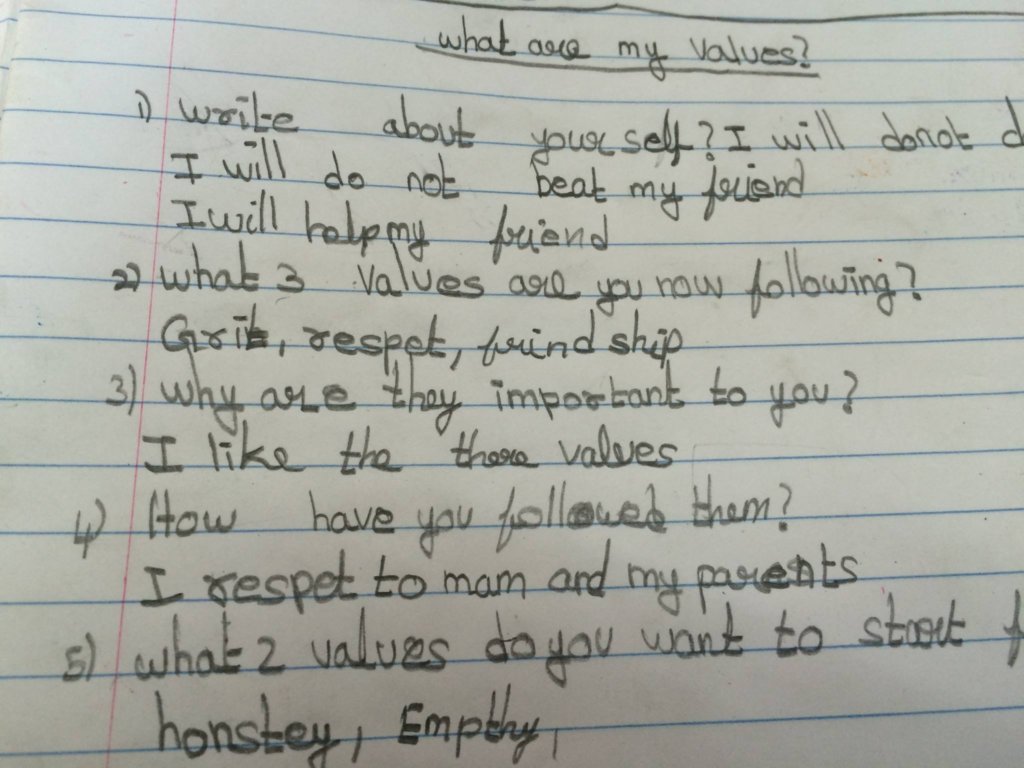 what are my values?
1) write about yourself? I will donot d
I will do not beat my friend
I will help my friend
2) what 3 values are you now following?
Grit, respet, frind ship
3) why are they important to you?
I like the there values
4) How have you followed them?
I respet to mam and my parents
5) what 2 values do you want to start f
honstey, Empthy,